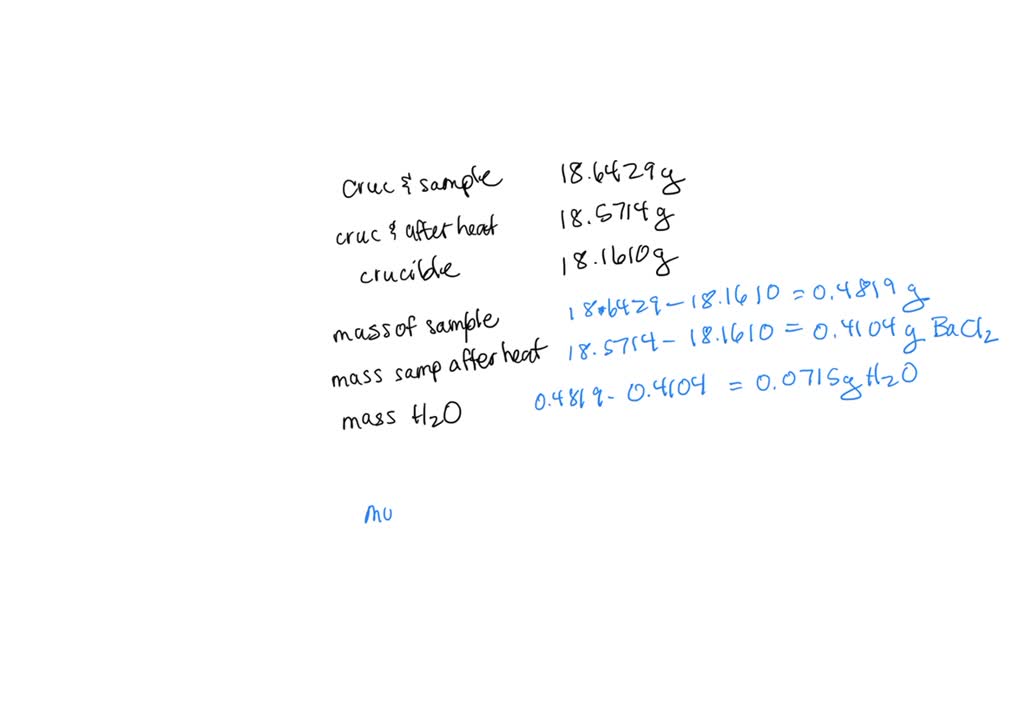 cruc & sample 18.6429g
cruc & after heat 18.5714g
crucible 18.1610g
mass of sample 18.6429 - 18.1610 = 0.4819 g
mass samp after heat 18.5714 - 18.1610 = 0.4104 g BaCl₂
mass H₂O 0.4819 - 0.4104 = 0.0715g H₂O
mo